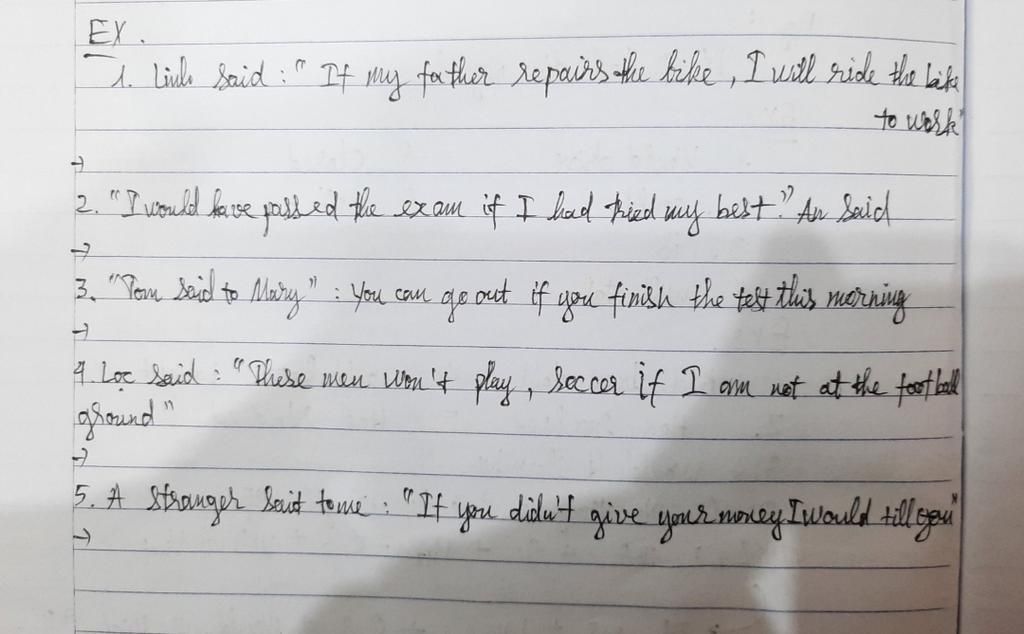 EX.
1. Linh said : " If my father repairs the bike, I will ride the bike
to work"
→
2. "I would have passed the exam if I had tried my best." An said
→
3. "Tom said to Mary" : You can go out if you finish the test this morning
→
4. Lộc said : "These men won't play, soccer if I am not at the football
ground"
→
5. A stranger said to me : "If you didn't give your money I would till you"
→